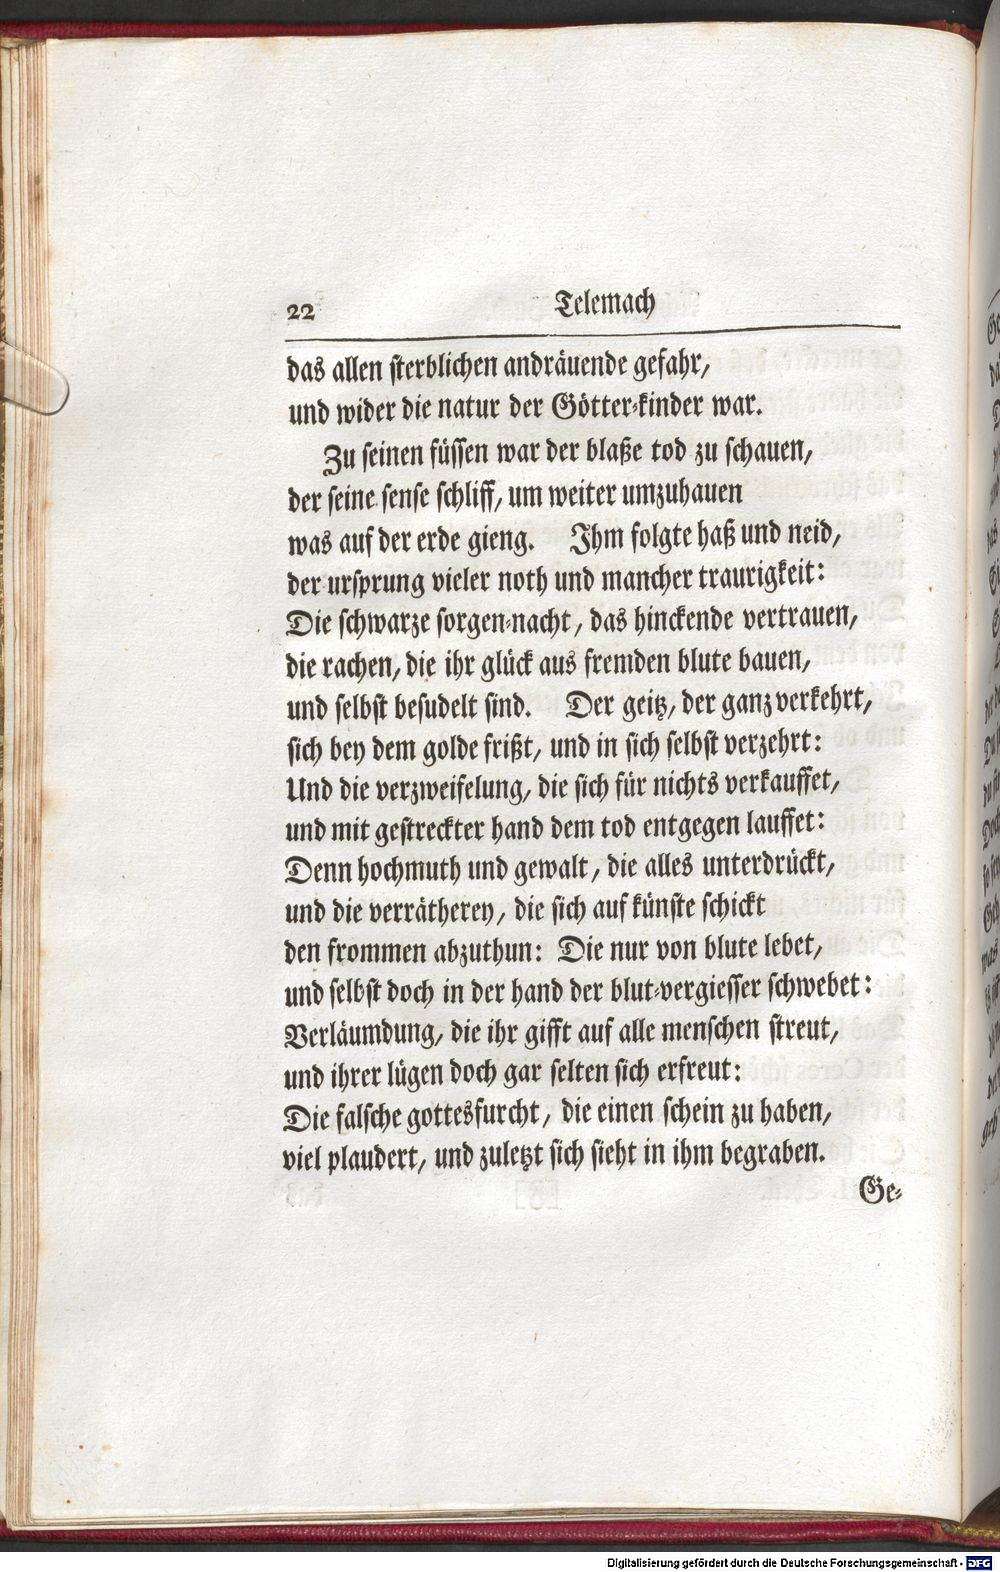 22 Telemach
das allen sterblichen andräuende gefahr,
und wider die natur der Götter-kinder war.
Zu seinen füssen war der blaße tod zu schauen,
der seine sense schliff, um weiter umzuhauen
was auf der erde gieng. Ihm folgte haß und neid,
der ursprung vieler noth und mancher traurigkeit:
Die schwarze sorgen-nacht, das hinckende vertrauen,
die rachen, die ihr glück aus fremden blute bauen,
und selbst besudelt sind. Der geitz, der ganz verkehrt,
sich bey dem golde frißt, und in sich selbst verzehrt:
Und die verzweifelung, die sich für nichts verkauffet,
und mit gestreckter hand dem tod entgegen lauffet:
Denn hochmuth und gewalt, die alles unterdrückt,
und die verrätherey, die sich auf künste schickt
den frommen abzuthun: Die nur von blute lebet,
und selbst doch in der hand der blut-vergiesser schwebet:
Verläumdung, die ihr gifft auf alle menschen streut,
und ihrer lügen doch gar selten sich erfreut:
Die falsche gottesfurcht, die einen schein zu haben,
viel plaudert, und zuletzt sich sieht in ihm begraben.
Ge-
Digitalisierung gefördert durch die Deutsche Forschungsgemeinschaft - DFG